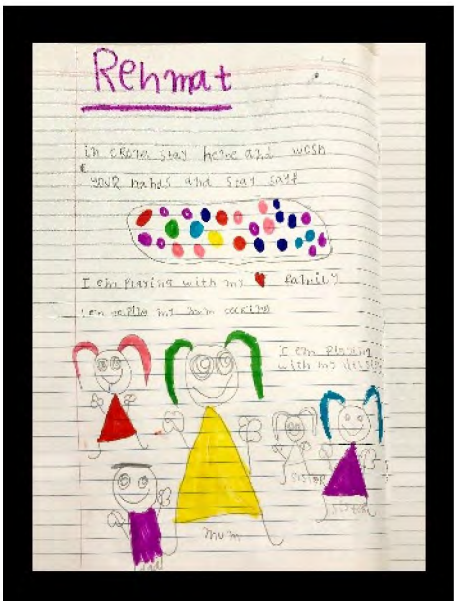 Rehmat
in crona stay home and wash
your hands and stay safe
I em Playing with my family
i em helping my mum cooking
i em Playing
with my
sister
sister
mum